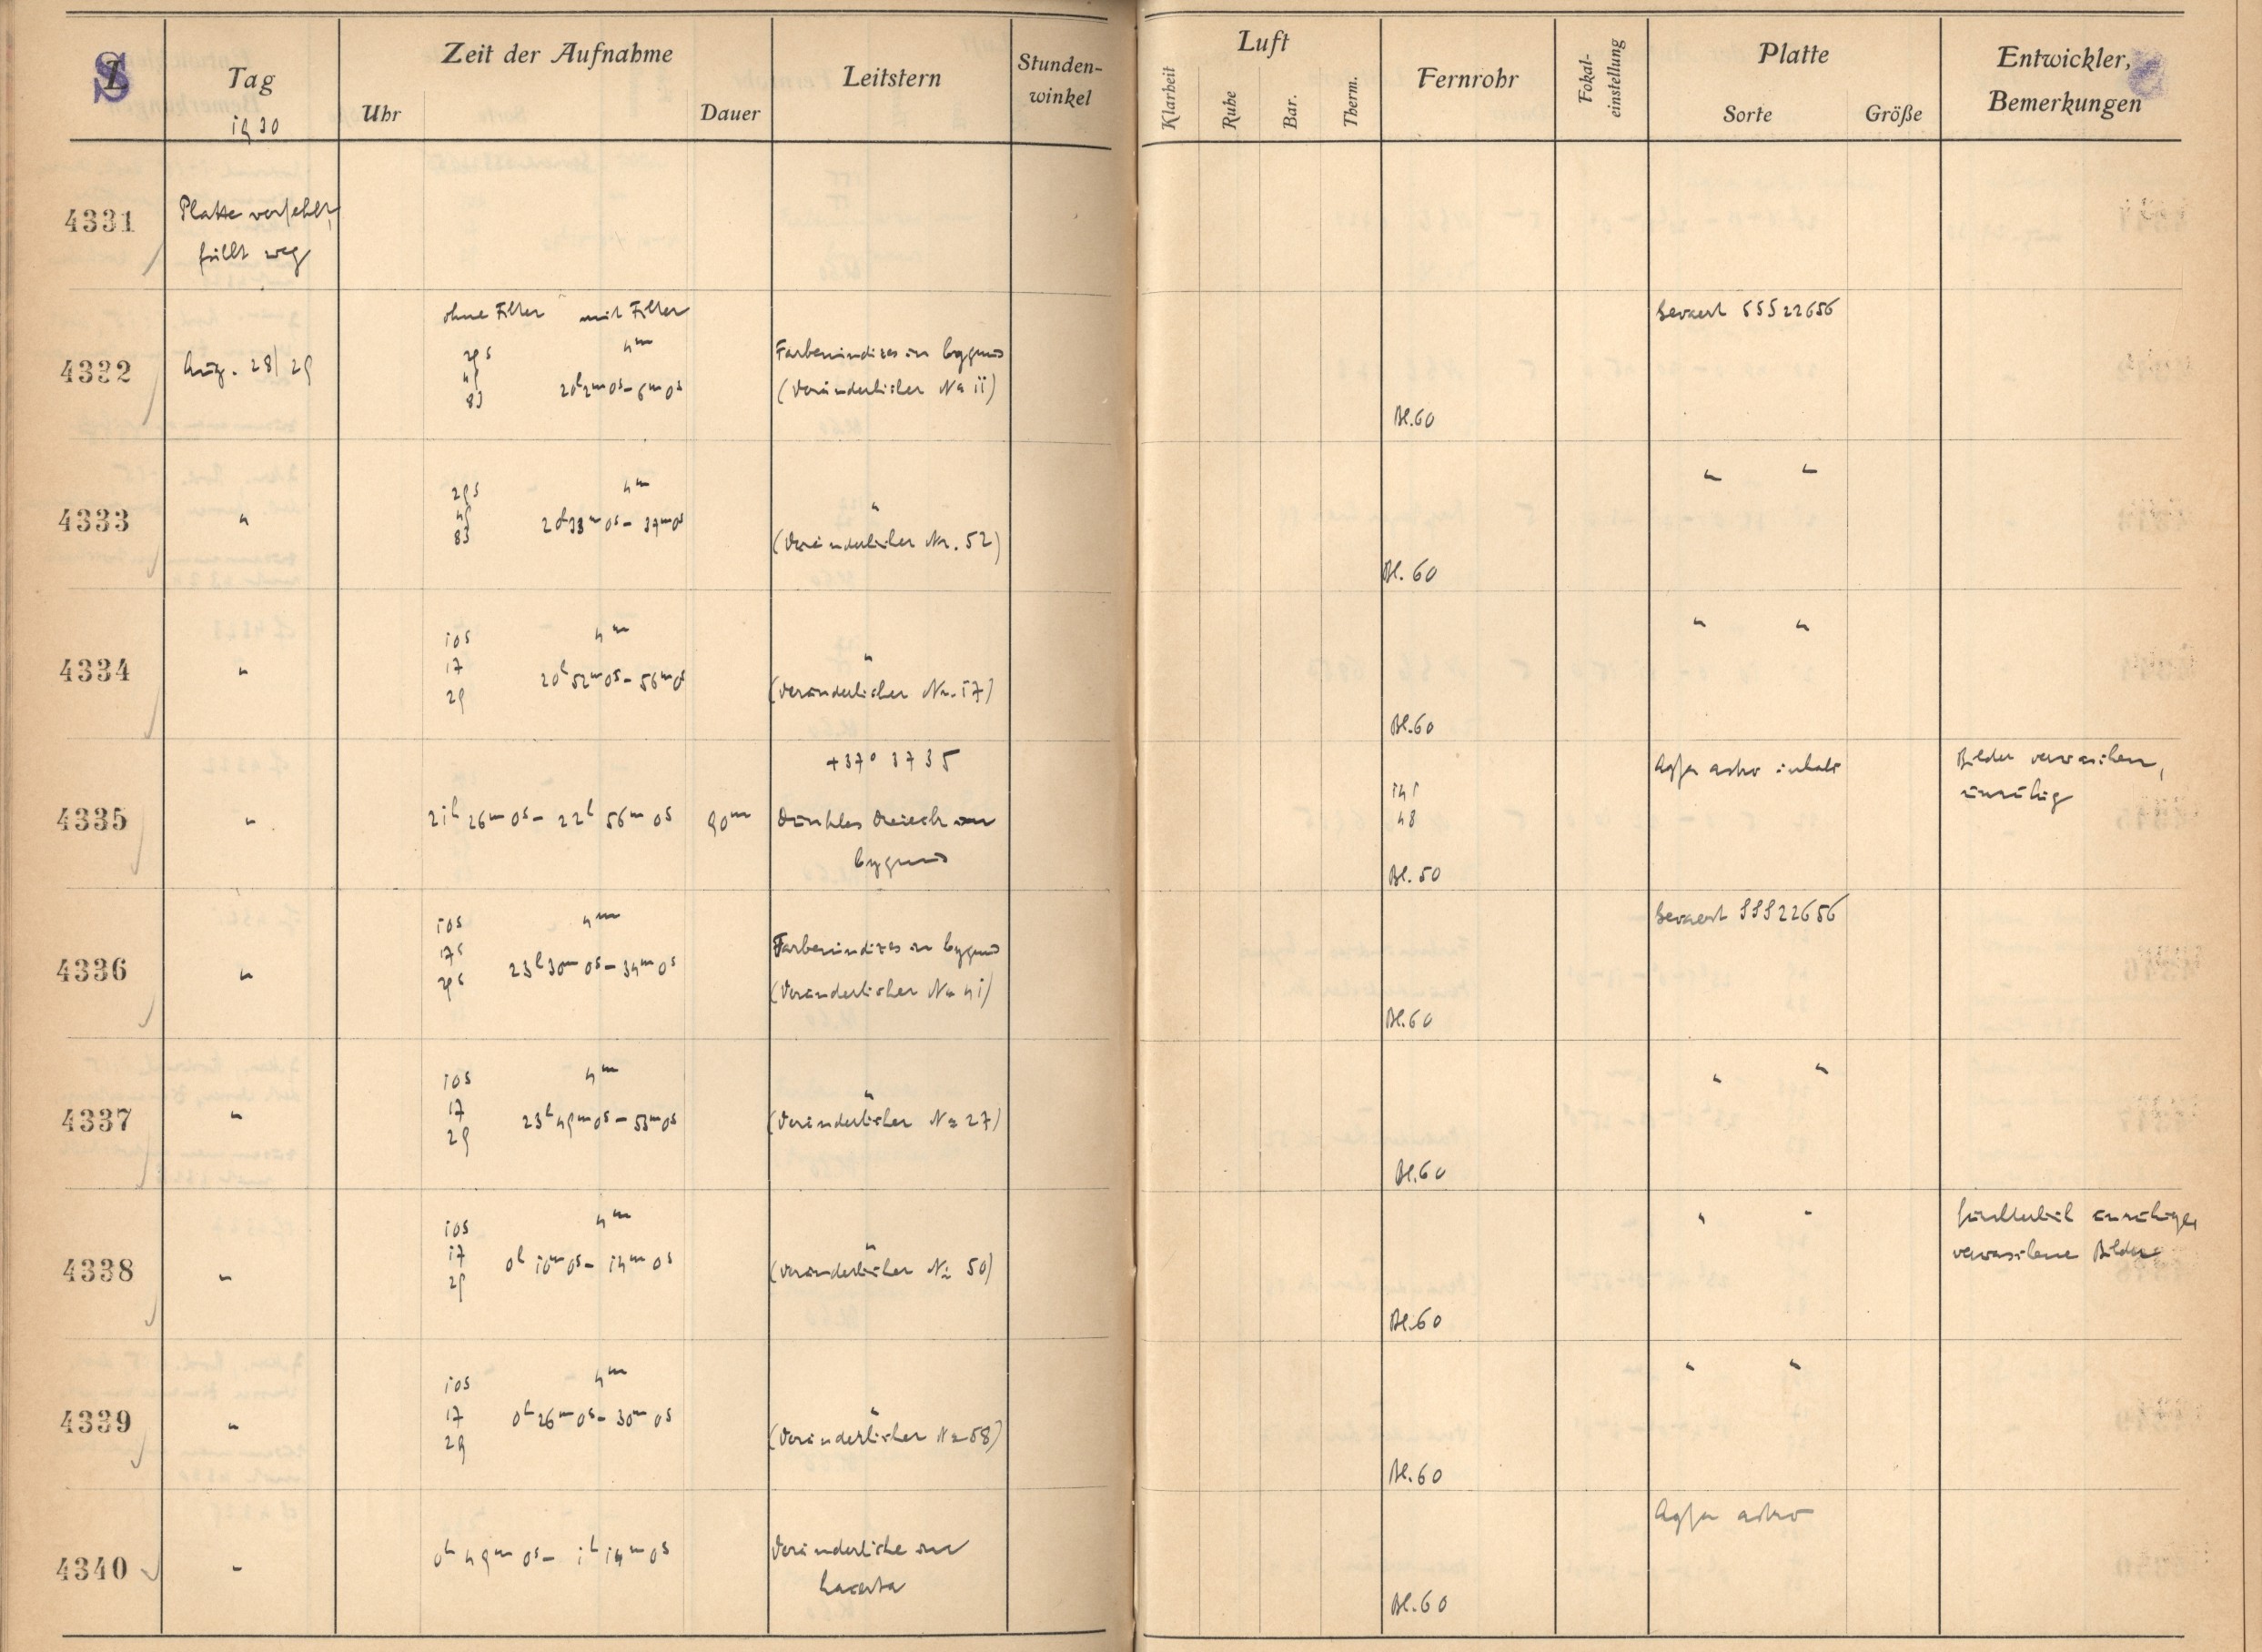 S
Tag
1930
Zeit der Aufnahme
Uhr
Dauer
Leitstern
Stunden-
winkel
Luft
Klarheit
Ruhe
Bar.
Therm.
Fernrohr
Fokal-
einstellung
Platte
Sorte
Größe
Entwickler,
Bemerkungen
4331
Platte verfehlt,
fällt weg
ohne Filter mit Filter
4332
Aug. 28/29
29s
49
83
4m
20h2m0s-6m0s
Farbenindizes in Cygnus
(Veränderlicher Nr 11)
Bl.60
Gevaert SSS 22656
4333
"
29s
49
83
4m
20h33m0s-37m0s
"
(Veränderlicher Nr. 52)
Bl. 60
" "
4334
"
10s
17
29
4m
20h52m0s-56m0s
"
(Veränderlicher Nr. 17)
Bl.60
" "
4335
"
21h 26m 0s- 22h 56m 0s
90m
+37° 3735
Dunkles Dreieck im
Cygnus
141
48
Bl. 50
Agfa astro
Bilder verwaschen,
unruhig
4336
"
10s
17s
29s
4m
23h30m0s-34m0s
Farbenindizes in Cygnus
(Veränderlicher Nr 41)
Bl.60
Gevaert SSS 22656
4337
"
10s
17
29
4m
23h49m0s-53m0s
"
(Veränderlicher Nr 27)
Bl.60
" "
4338
"
10s
17
29
4m
0h 10m0s- 14m 0s
"
(Veränderlicher Nr 50)
Bl.60
" "
unruhige,
verwaschene Bilder
4339
"
10s
17
29
4m
0h26m0s-30m0s
"
(Veränderlicher Nr 58)
Bl.60
" "
4340
"
0h 49m 0s- 1h 14m 0s
Veränderliche in
Lacerta
Bl.60
Agfa astro